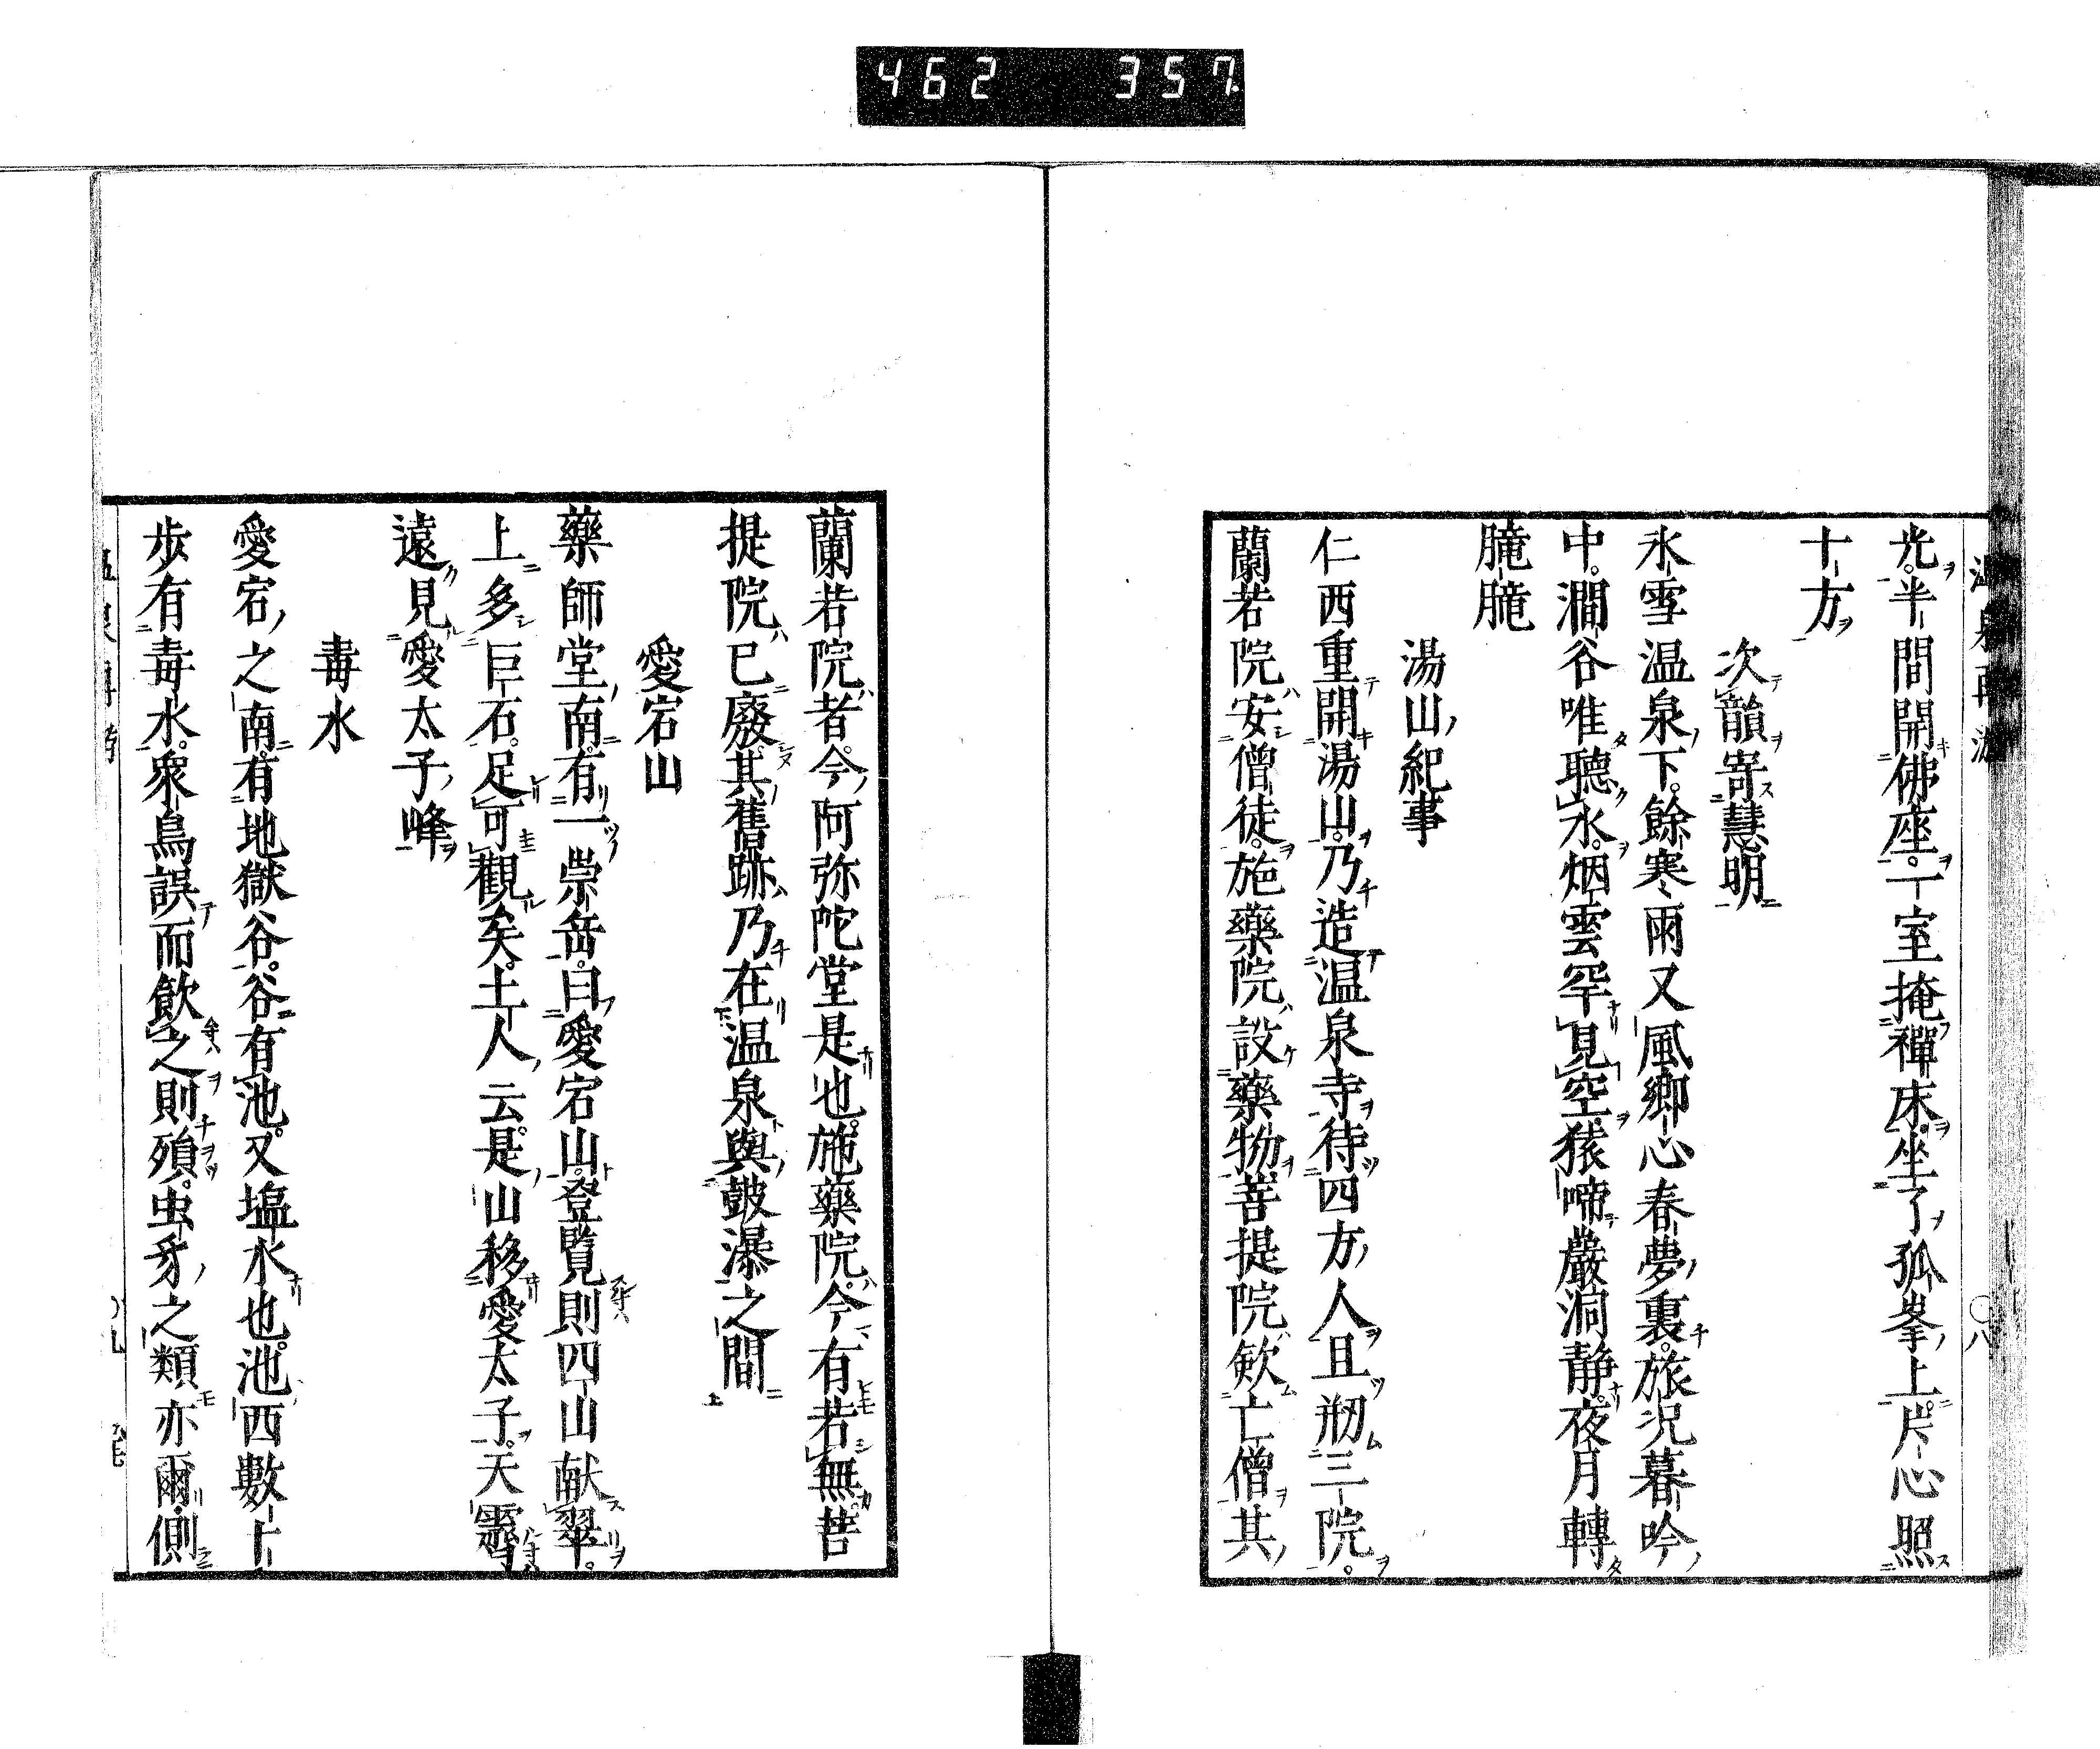 462 357
光半間開佛座。一室掩禪床。坐了孤峯上。片心照
十方
次韻寄慧明
氷雪温泉下。餘寒雨又風鄉心春夢裏。旅况暮吟
中。澗谷唯聽水。烟雲罕見空。猿啼巖洞静。夜月轉
朣朣
湯山紀事
仁西重開湯山。乃造温泉寺待四方人且剏三院。
蘭若院安僧徒。施藥院設藥物。菩提院斂亡僧其
蘭若院者。今阿弥陀堂是也。施藥院。今有若無菩
提院已廢。其舊跡乃在温泉與皷瀑之間
愛宕山
藥師堂南。有一崇岳。曰愛宕山。登覽則四山献翠。
上多巨石。足可觀矣。土人云。是山移愛太子。天霽
遠見愛太子峰
毒水
愛宕之南。有地獄谷。谷有池。又塩水也。池西數十
步有毒水。衆鳥誤而飲之則殞。虫豸之類亦爾。側